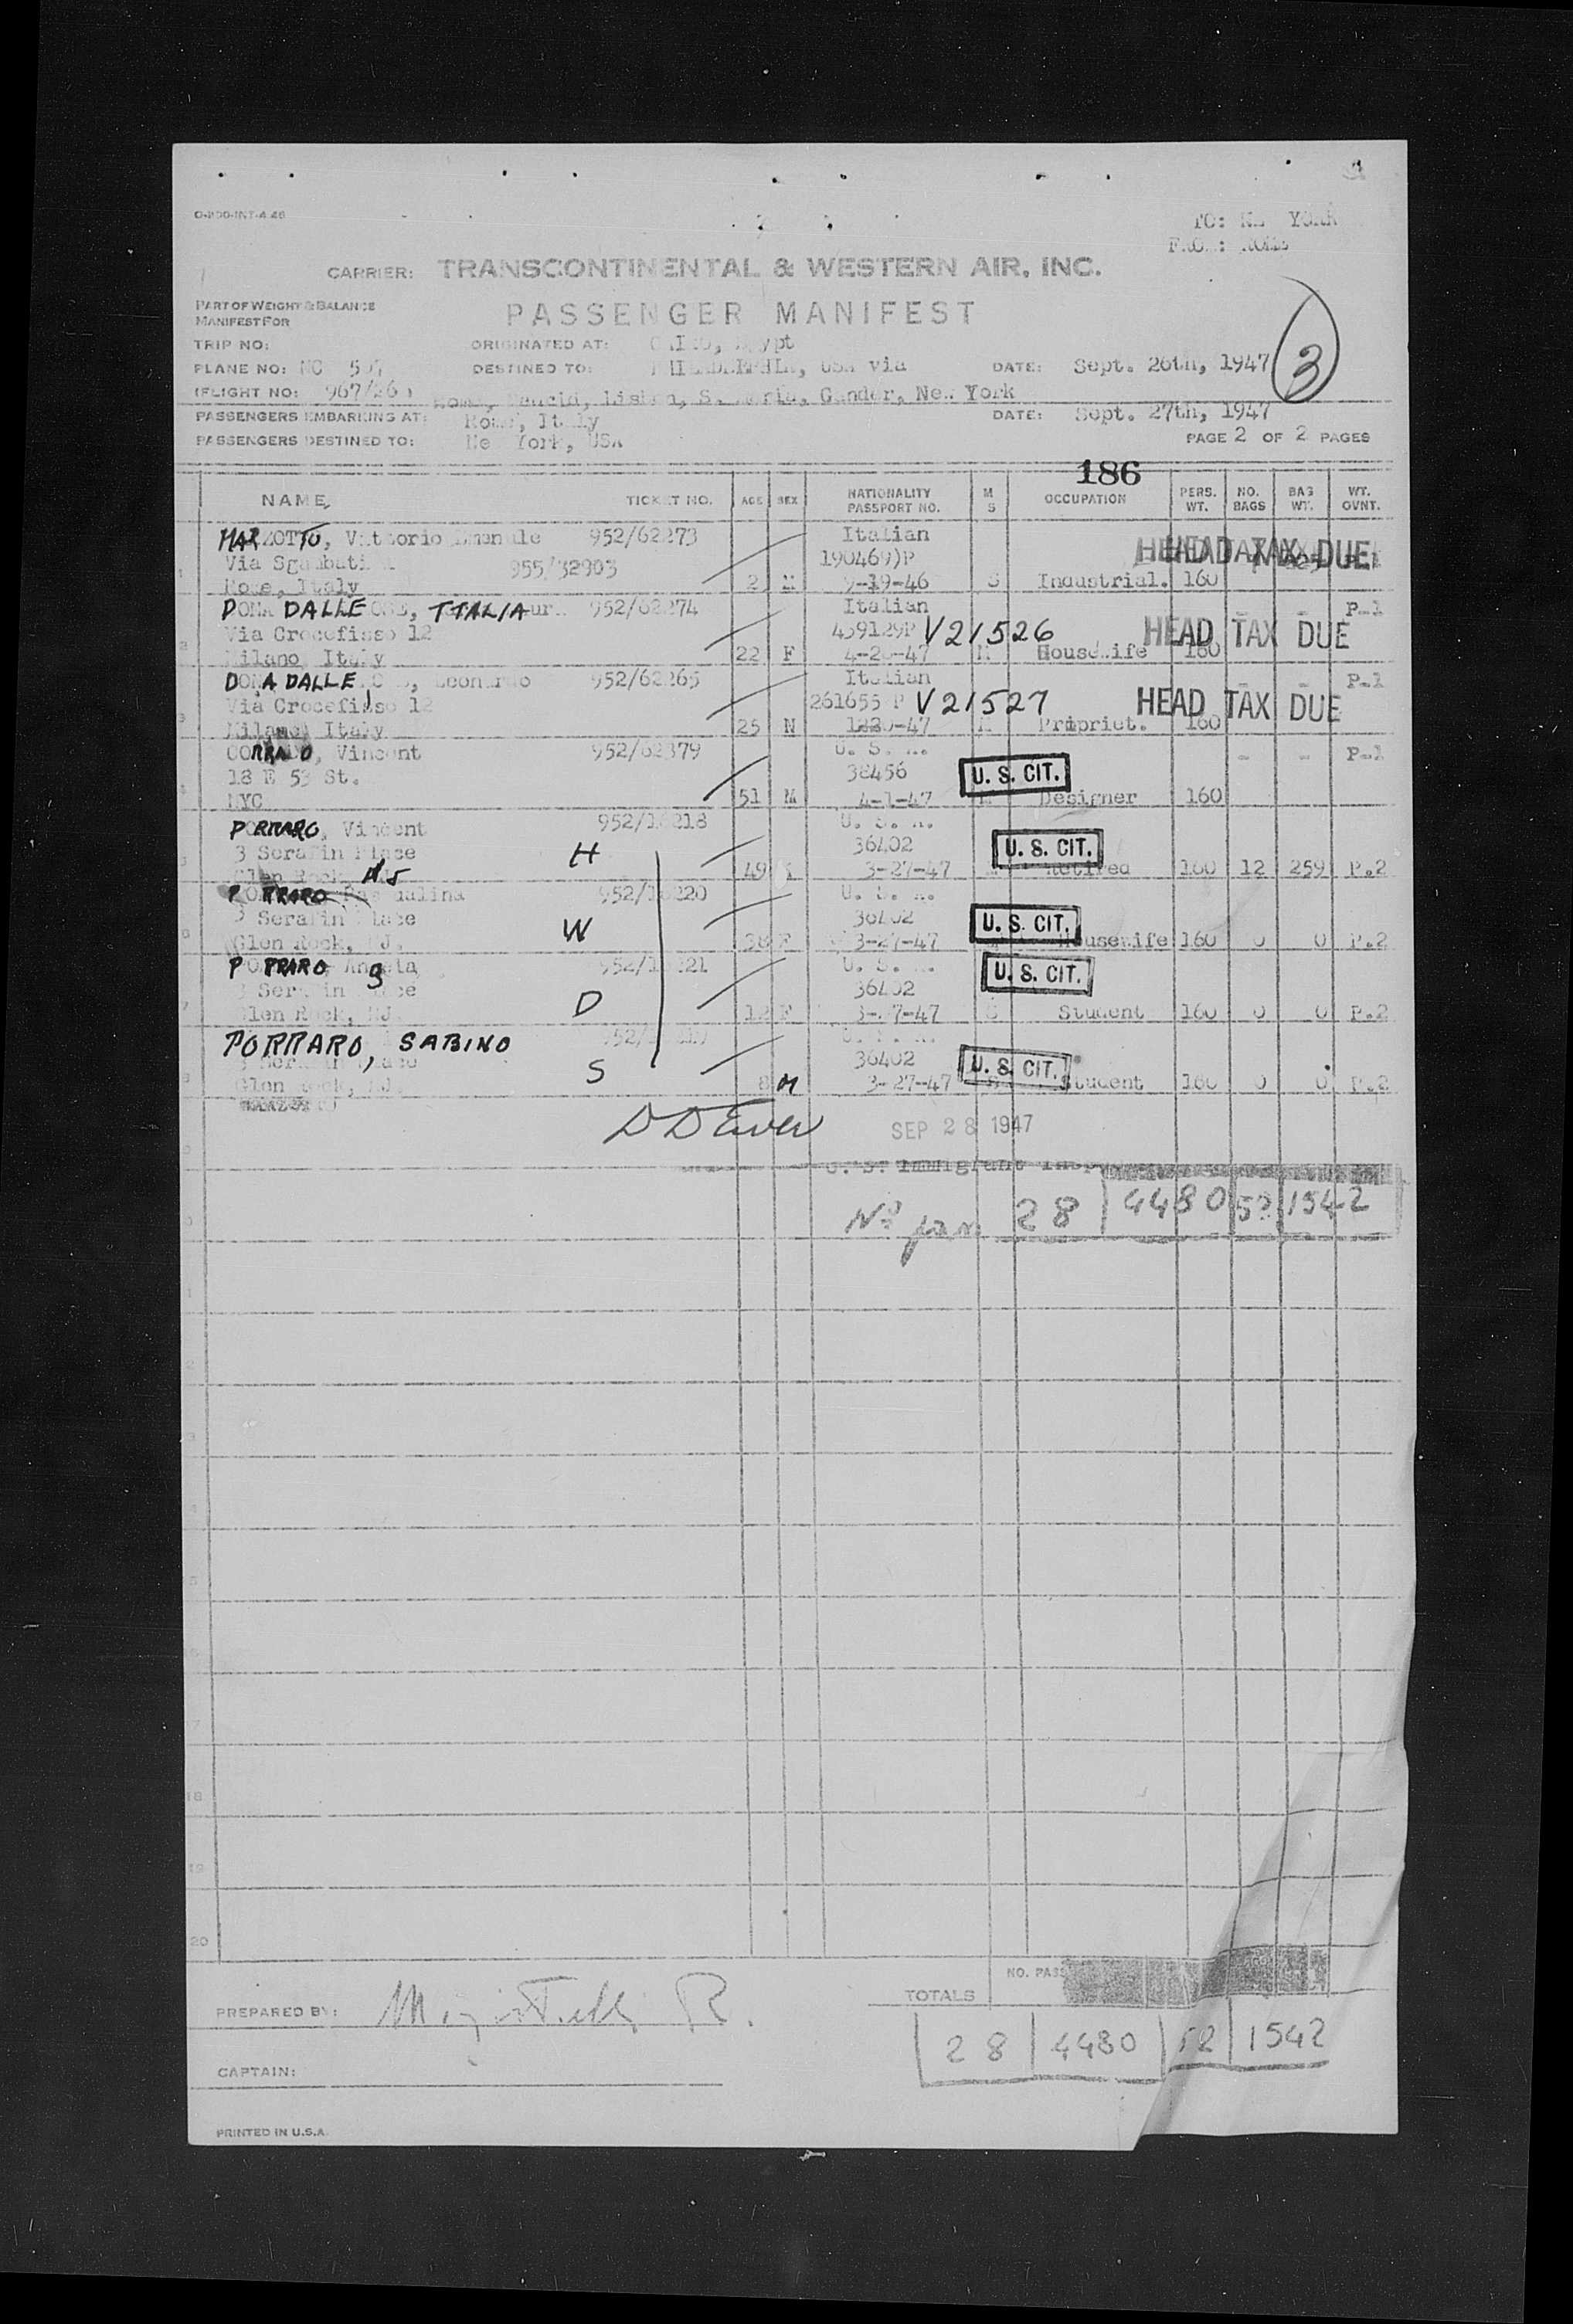 O-800-INT-4.46
TO: NEW YORK
FROM: ROME
CARRIER: TRANSCONTINENTAL & WESTERN AIR, INC.
PART OF WEIGHT & BALANCE
MANIFEST FOR
PASSENGER MANIFEST
3
TRIP NO:
ORIGINATED AT: CAIRO, Egypt
PLANE NO: NC
DESTINED TO: PHILADELPHIA, USA via
DATE: Sept. 26th, 1947
(FLIGHT NO: 967/26)
Rome, Madrid, Lisbon, S. Maria, Gander, New York
PASSENGERS EMBARKING AT: Rome, Italy
DATE: Sept. 27th, 1947
PASSENGERS DESTINED TO: New York, USA
PAGE 2 OF 2 PAGES
186
NAME TICKET NO. AGE SEX NATIONALITY PASSPORT NO. M S OCCUPATION PERS. WT. NO. BAGS BAG WT. WT. GVNT.
MARZOTTO, Vittorio Emanuele 952/62273 Italian
Via 955/32903 190469)P HEAD TAX DUE
Rome, Italy M 9-19-46 S Industrial. 160
DONA DALLE ROSE, ITALIA 952/62274 Italian P-1
Via Crocefisso 12 459129P V21526 HEAD TAX DUE
Milano, Italy 22 F 4-2 -47 M Housewife 160
DONA DALLE ROSE, Leonardo 952/62265 Italian P-1
Via Crocefisso 12 261655 P V21527 HEAD TAX DUE
Milano, Italy 25 M -47 M Propriet. 160
CORRADO, Vincent 952/62379 U. S. A. - - P-1
18 E 53 St. 38456 U. S. CIT.
NYC 51 M 4-1-47 Designer 160
PORRARO, Vincent 952/1 218 U. S. A.
3 Serafin Place H 36402 U. S. CIT.
Glen Rock, NJ 49 3-27-47 Retired 160 12 259 P.2
PORRARO Pasqualina 952/1 220 U. S. A.
3 Serafin Place W 36402 U. S. CIT.
Glen Rock, NJ. 38 F 3-27-47 Housewife 160 0 0 P.2
PORRARO, Angela 952/1 221 U. S. A.
3 Serafin Place D 36402 U. S. CIT.
Glen Rock, NJ. 12 F 3-27-47 S Student 160 0 0 P.2
PORRARO, SABINO 952/ U. S. A.
3 Serafin Place S 36402 U. S. CIT.
Glen Rock, NJ. 8 M 3-27-47 S Student 160 0 0 P.2
SEP 28 1947
U. S. Immigrant
28 4480 52 1542
18
19
20
NO. PASS
TOTALS
PREPARED BY:
28 4480 52 1542
CAPTAIN:
PRINTED IN U.S.A.